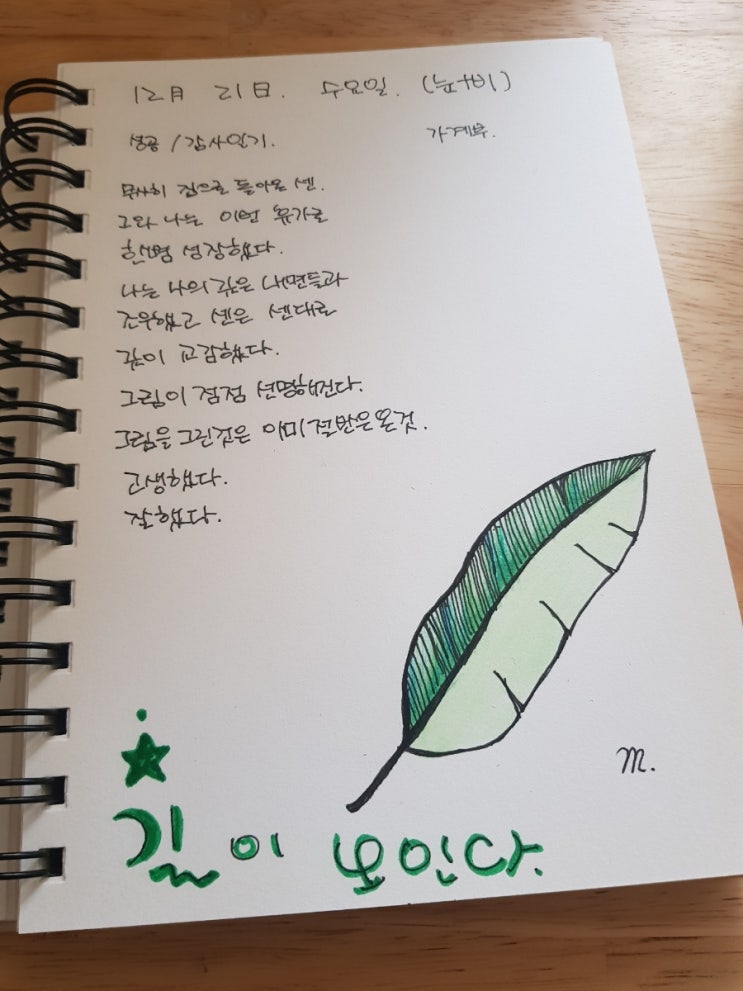 12月 21日. 수요일. (눈+비)
성공 / 감사일기. 가계부.
무사히 집으로 돌아온 센.
그와 나는 이번 휴가로
한뼘 성장했다.
나는 나의 깊은 내면들과
조우했고 센은 센대로
깊이 교감했다.
그림이 점점 선명해진다.
그림을 그린것은 이미 절반은 온것.
고생했다.
잘했다.
길이 보인다.
m.